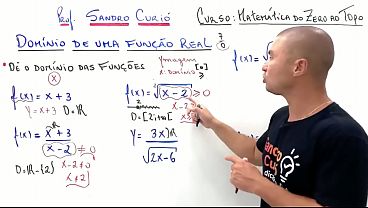 Prof. Sandro Curió
Curso: Matemática do Zero ao Topo
Domínio de uma função Real
• Dê o domínio das funções
(x)
Y: imagem
x: domínio
f(x) = x + 3
Y = x + 3 D = R
f(x) = x + 3
x - 2 ≠ 0
D = R - {2}
x - 2 ≠ 0
x ≠ 2
f(x) = √(x - 2) ≥ 0
x - 2
D = [2; +∞[
Y = 3x
√2x - 6
f(x) = √